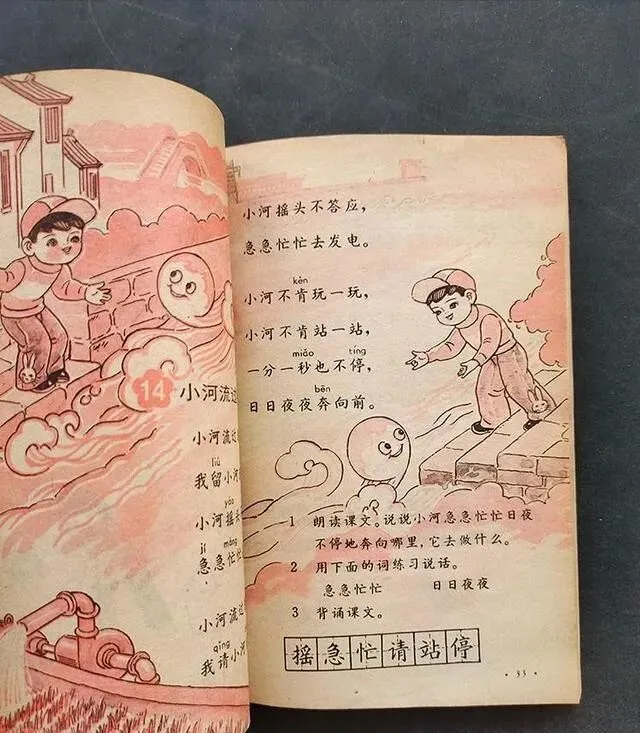 14 小河流过
小河流过
liú
我留小河
yáo
小河摇头
jí máng
急急忙忙
小河流过
qǐng
我请小河
小河摇头不答应，
急急忙忙去发电。
kěn
小河不肯玩一玩，
小河不肯站一站，
miǎo tíng
一分一秒也不停，
bēn
日日夜夜奔向前。
1 朗读课文。说说小河急急忙忙日夜
不停地奔向哪里，它去做什么。
2 用下面的词练习说话。
急急忙忙 日日夜夜
3 背诵课文。
摇急忙请站停
·33·